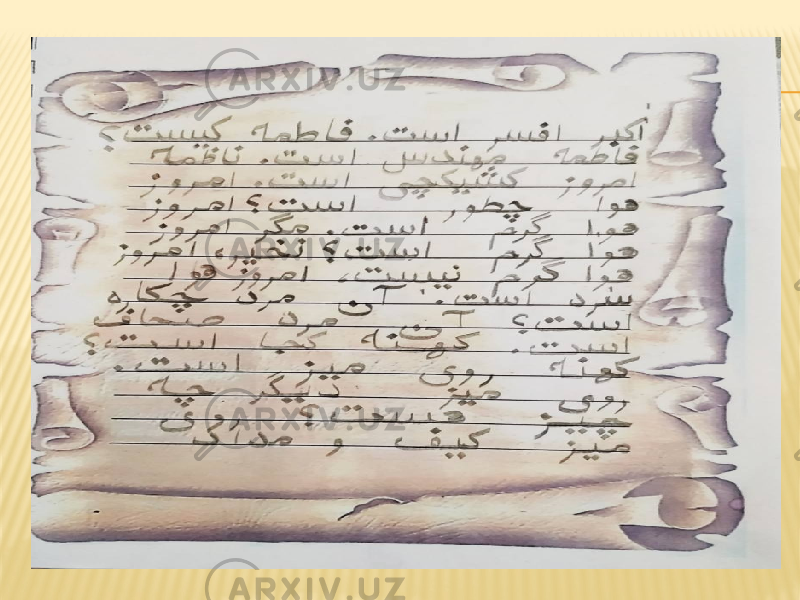 ARXIV.UZ
اکبر افسر است. فاطمه کیست؟
فاطمه مهندس است. ناظمه
امروز کشیکچی است. امروز
هوا چطور است؟ امروز
هوا گرم است. مگر امروز
هوا گرم است؟ نخیر، امروز
هوا گرم نیست، امروز هوا
سرد است. آن مرد چکاره
است؟ آن مرد صحاف
است. کهنه کجا است؟
کهنه روی میز است.
روی میز دیگر چه
چیز هست؟ روی
میز کیف و مداد
ARXIV.UZ
ARXIV.UZ
ARXIV.UZ